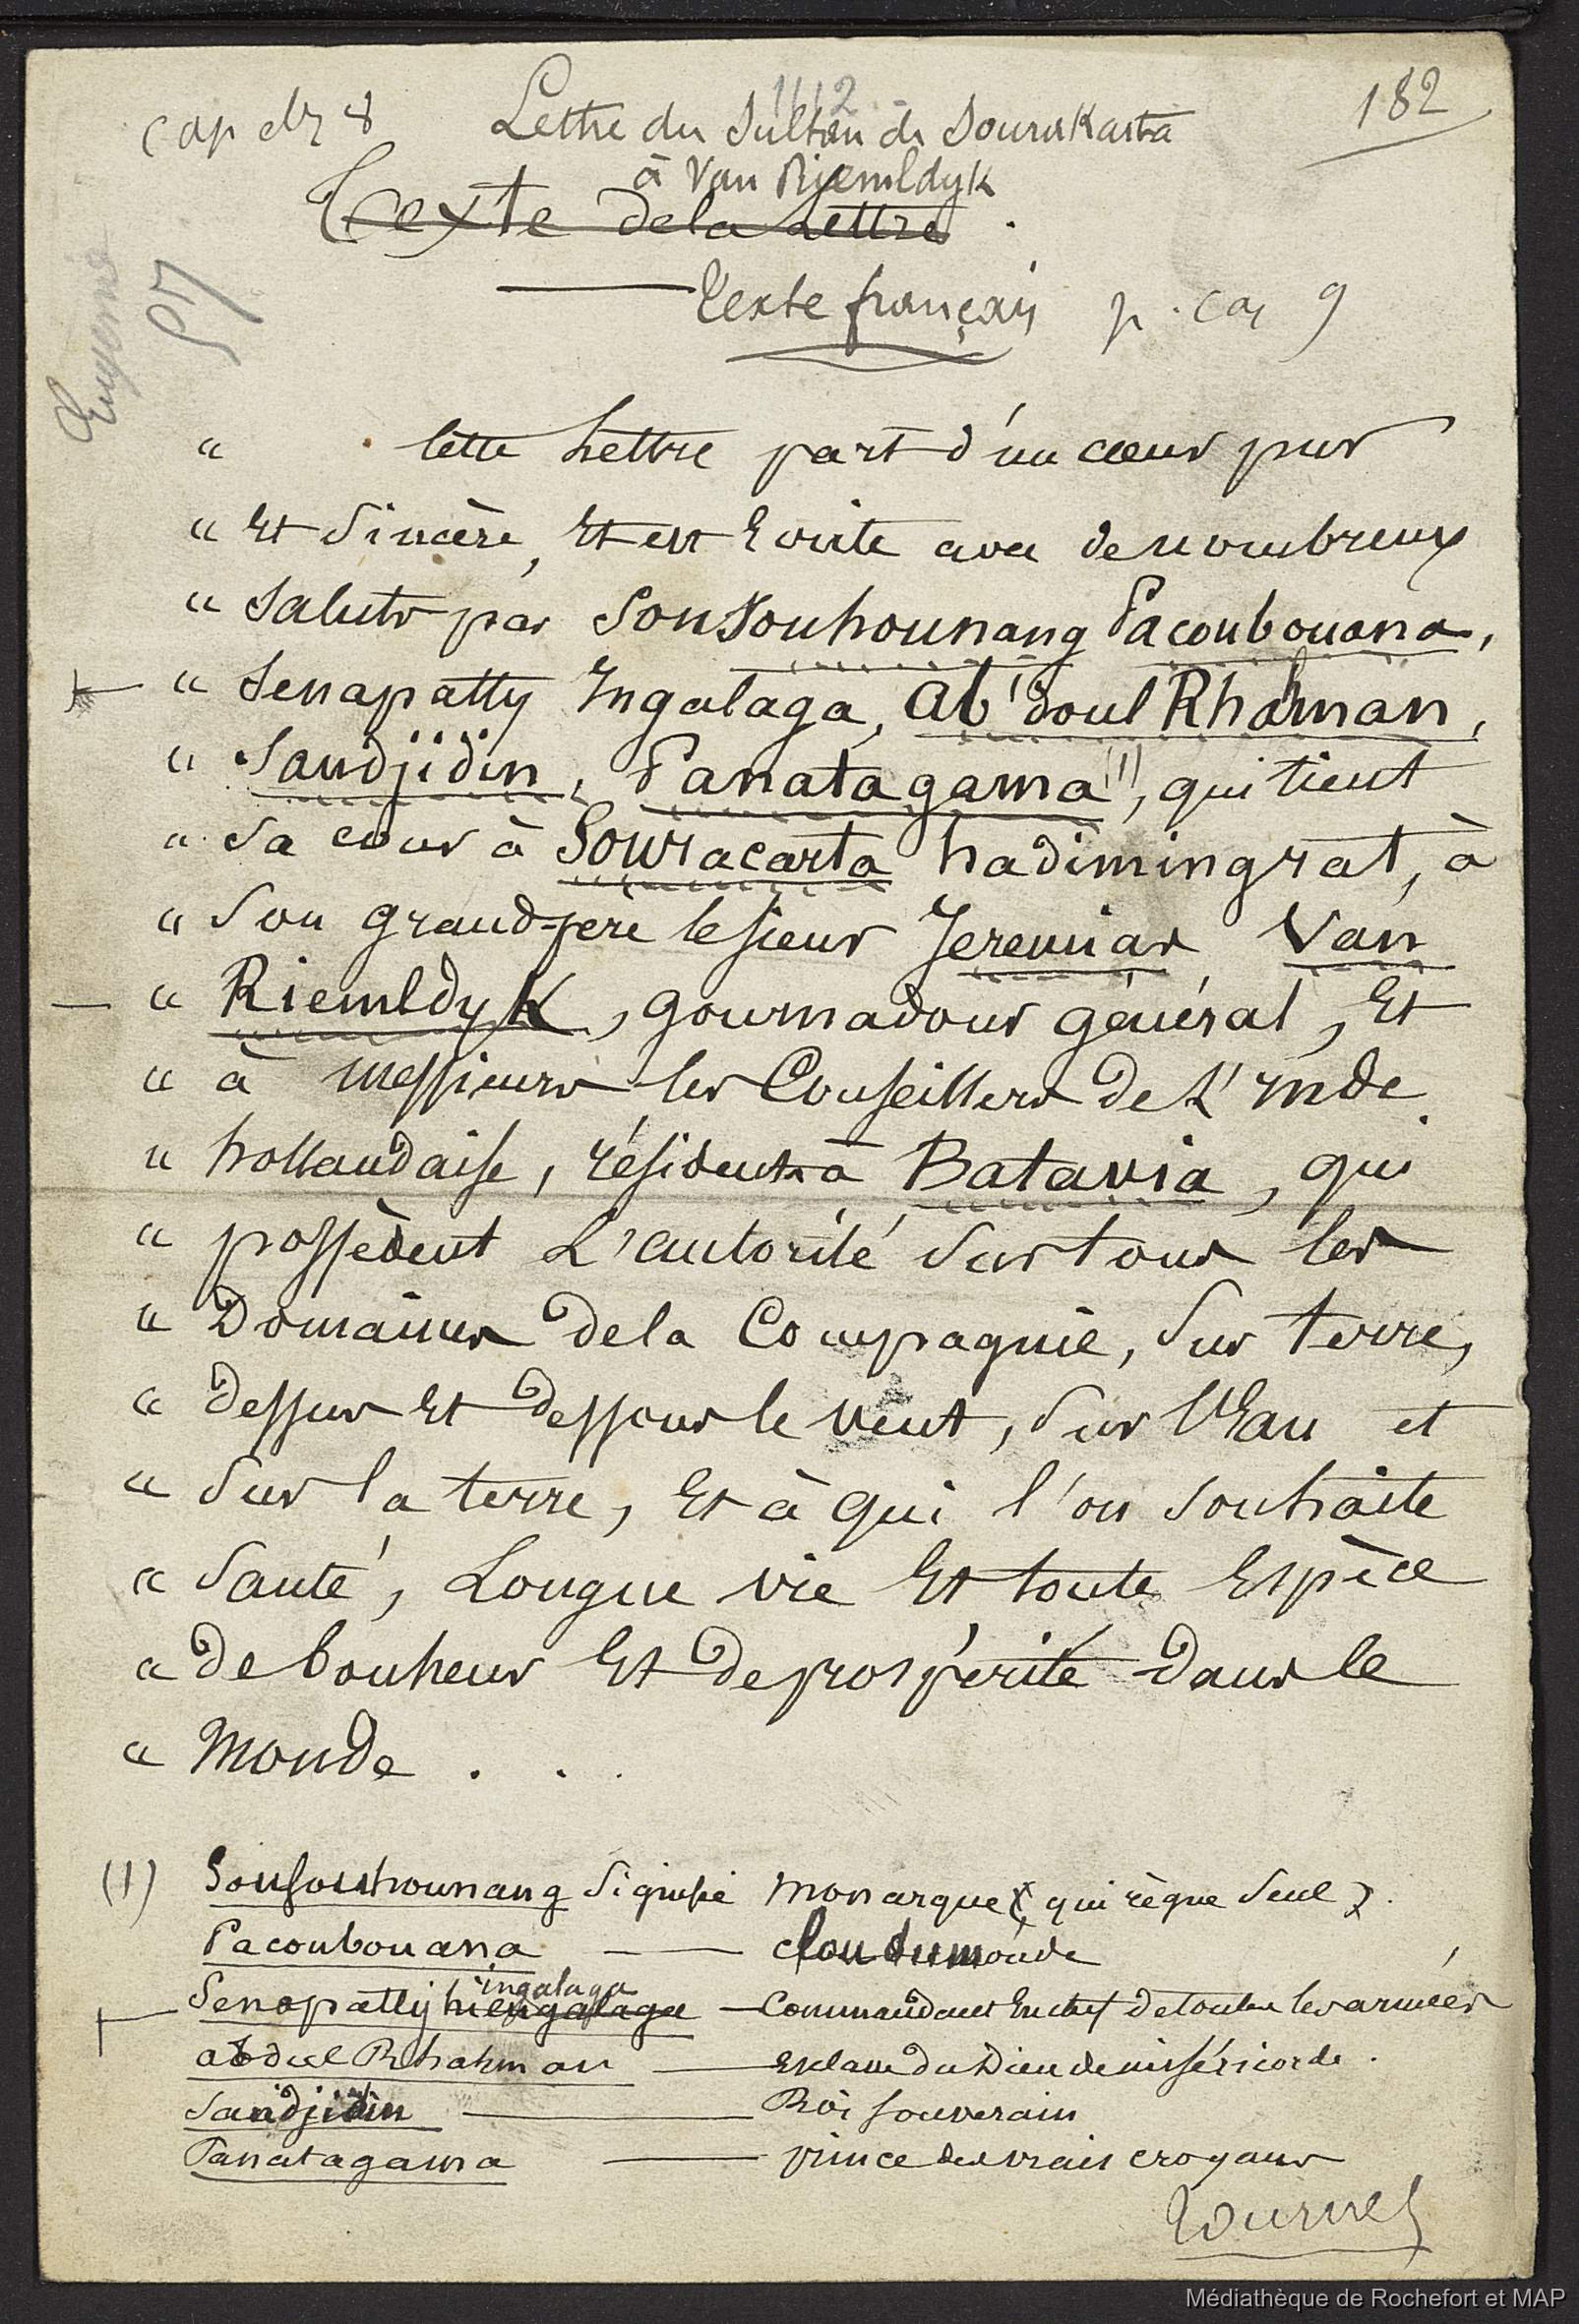 1112
182
cap des 8 Lettre du Sultan de Sourakarta
à Van Riemldyk
Texte de la Lettre
Texte français p. cap 9
Eugenie
57
" Cette Lettre part d'un cœur pur
" Et Sincère, Et est Ecrite avec de nombreux
" Saluts par Sousouhounang Pacoubouana,
" Senapatty Ingalaga, Ab'doul Rhaman,
" Sandjidin, Panatagama (1), qui tient
" Sa cour à Souracarta hadimingrat, à
" Son grand-père le sieur Jeremias Van
" Riemldyk, gournadour général, Et
" à messieurs les Conseillers de L'Inde
" hollandaise, résidents à Batavia, qui
" possèdent L'autorité Sur tous les
" Domaines de la Compagnie, Sur terre,
" Dessus Et Dessous le vent, Sur l'Eau et
" Sur la terre, Et à qui l'on Souhaite
" Santé, Longue vie Et toute Espèce
" De bonheur Et De prospérité Dans le
" Monde . . .
(1) Sousouhounang Signifie Monarque (qui règne Seul).
Pacoubouana — — clou du monde
ingalaga
Senapatty hiengalaga — Commandant En chef De toutes les armées
abdul Rhahman — Esclave du Dieu de miséricorde.
Sandjidin — Roi Souverain
Panatagama — prince des vrais croyans
Tournez
Médiathèque de Rochefort et MAP